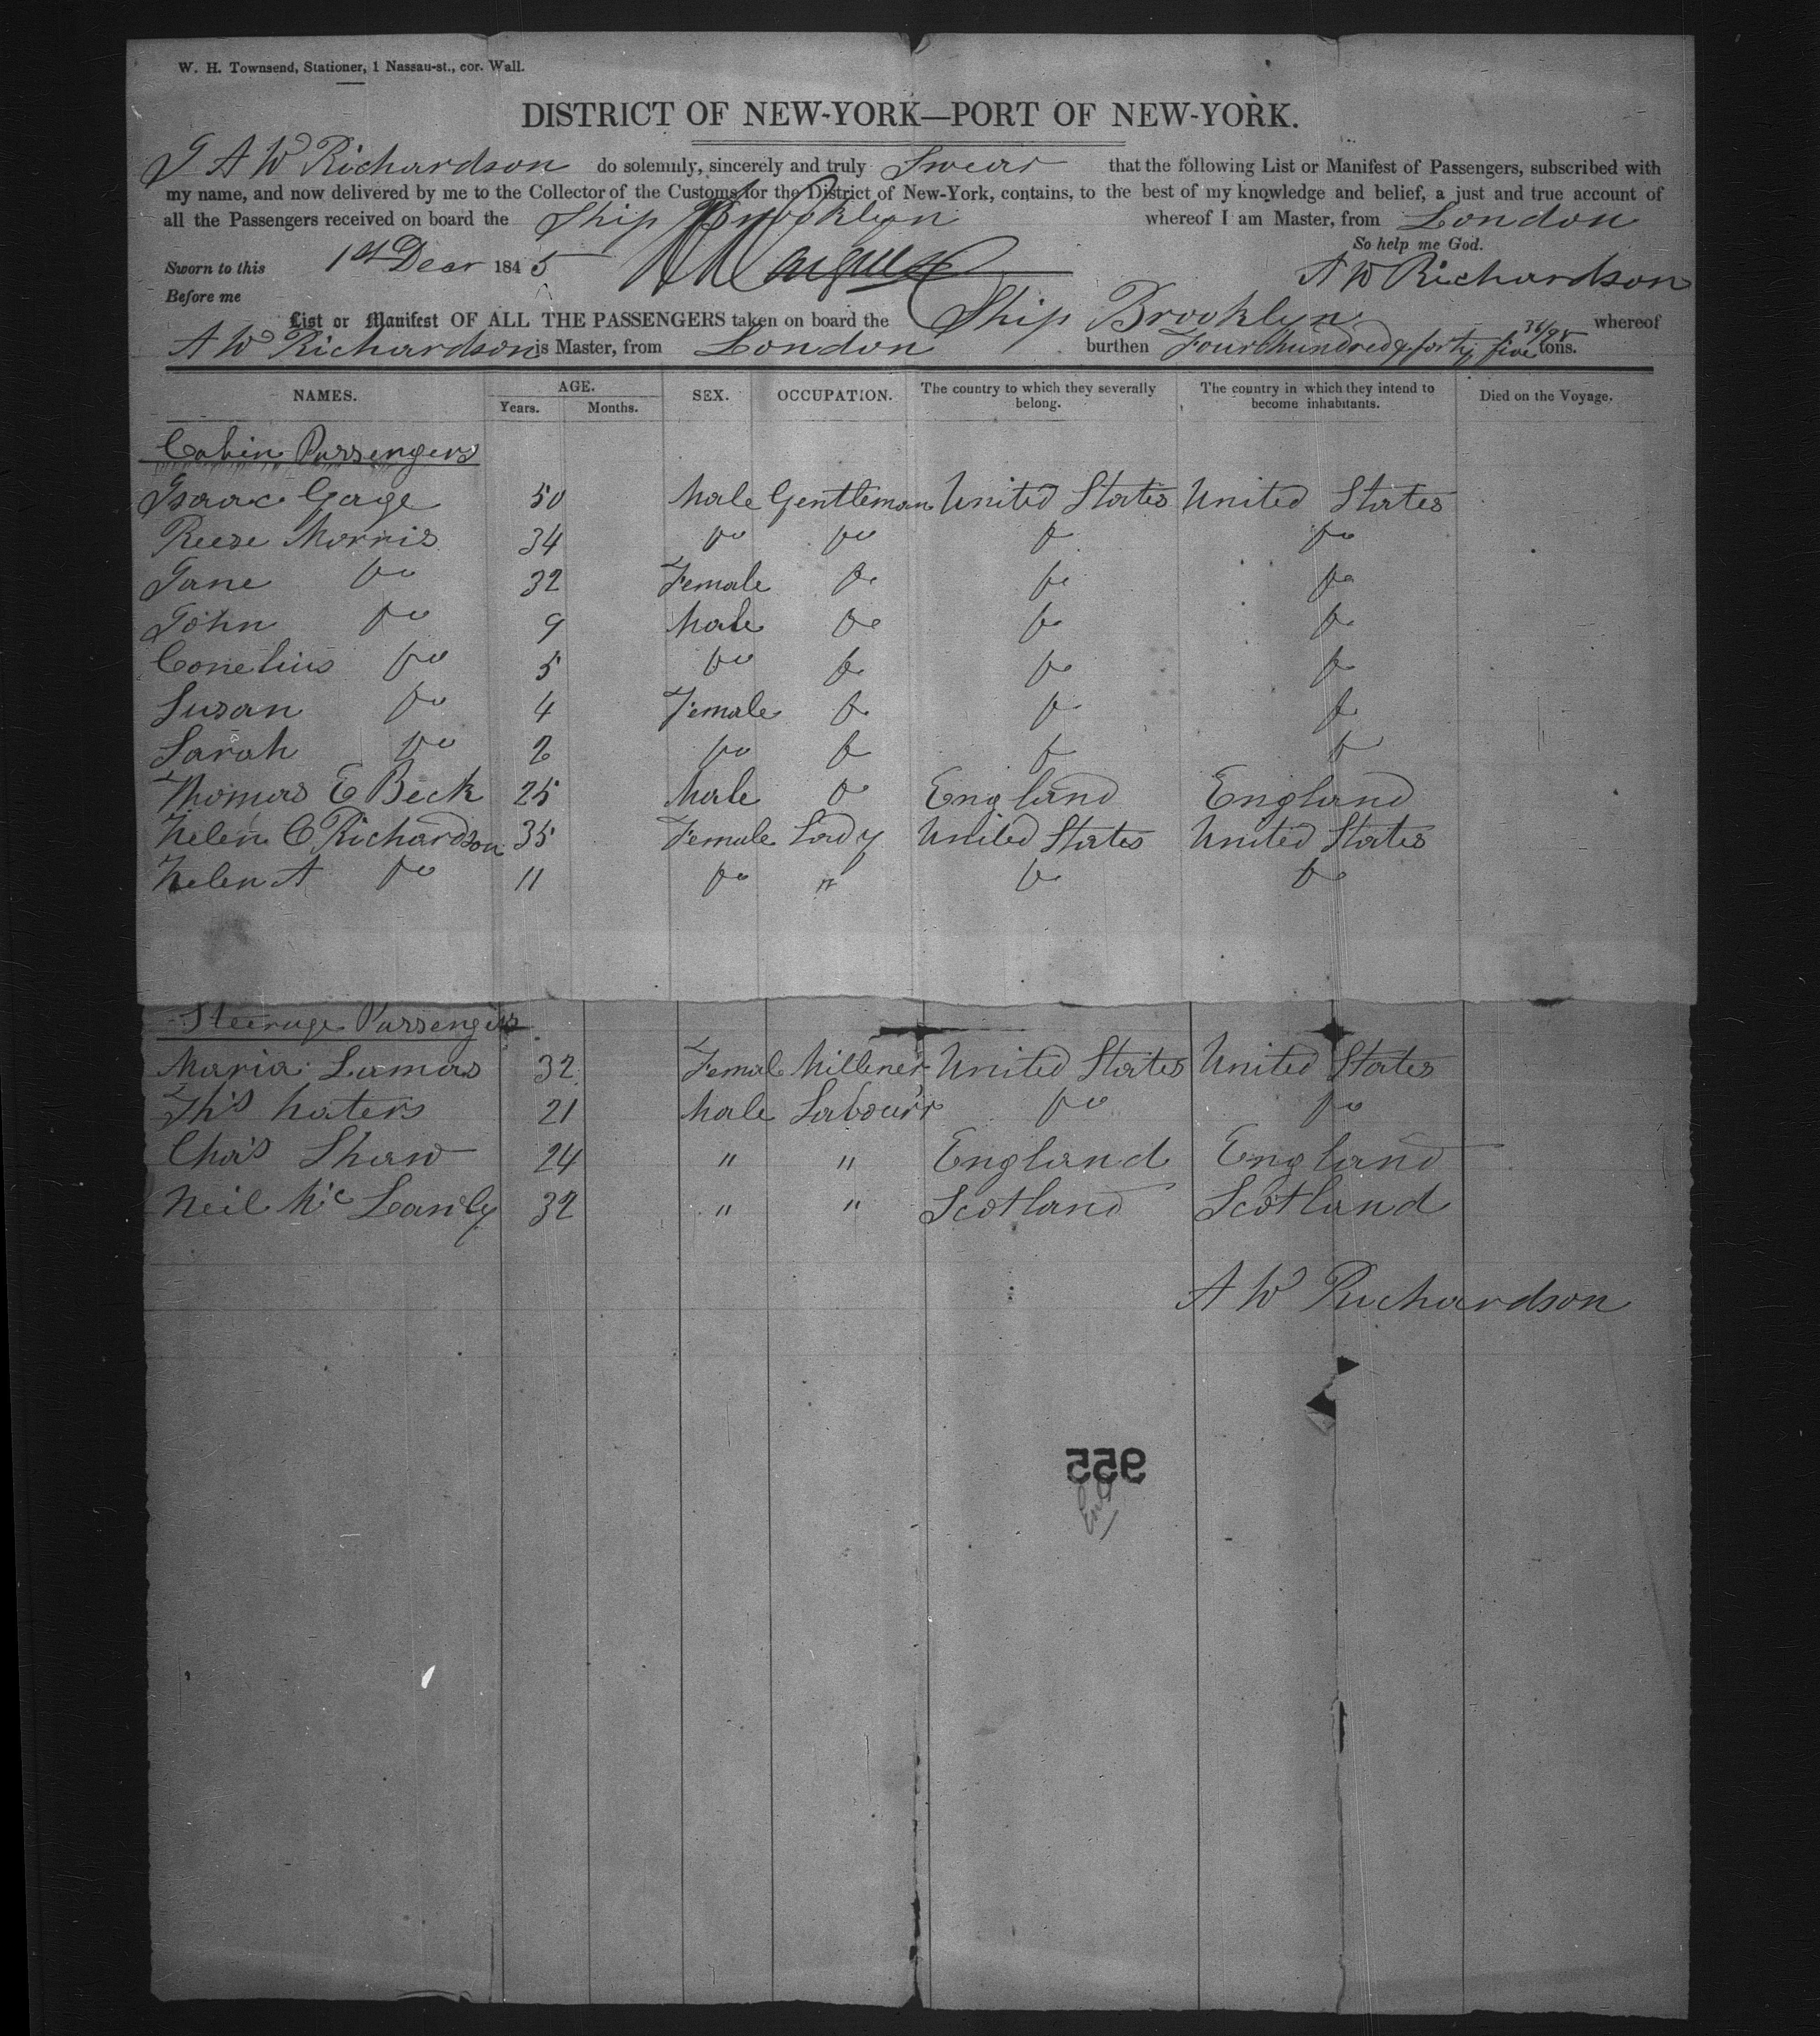 W. H. Townsend, Stationer, 1 Nassau-st., cor. Wall.
DISTRICT OF NEW-YORK—PORT OF NEW-YORK.
I A W Richardson do solemnly, sincerely and truly Swear that the following List or Manifest of Passengers, subscribed with
my name, and now delivered by me to the Collector of the Customs for the District of New-York, contains, to the best of my knowledge and belief, a just and true account of
all the Passengers received on board the Ship Brooklyn whereof I am Master, from London
So help me God.
Sworn to this 1st Decr 1845 A W Richardson
Before me
List or Manifest OF ALL THE PASSENGERS taken on board the Ship Brooklyn whereof
A W Richardson is Master, from London burthen Four hundred & forty five tons.
NAMES. AGE. SEX. OCCUPATION. The country to which they severally belong. The country in which they intend to become inhabitants. Died on the Voyage.
Years. Months.
Cabin Passengers
Isaac Gage 50 Male Gentleman United States United States
Reese Morris 34 Do Do Do Do
Jane Do 32 Female Do Do Do
John Do 9 Male Do Do Do
Conelius Do 5 Do Do Do Do
Susan Do 4 Female Do Do Do
Sarah Do 2 Do Do Do Do
Thomas E Beck 25 Male Do England England
Helen C Richardson 35 Female Lady United States United States
Helen A Do 11 Do " Do Do
Steerage Passengers
Maria Lamas 32 Female Millener United States United States
Ths Waters 21 Male Labour'r Do Do
Cha's Shaw 24 " " England England
Neil Mc 32 " " Scotland Scotland
A W Richardson
955